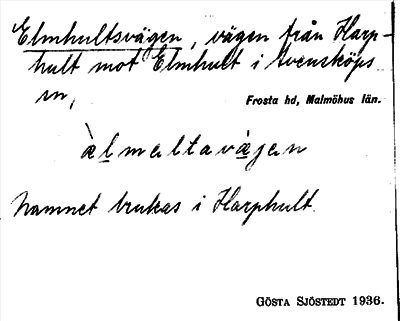 Elmhultsvägen, vägen från Harp-
hult mot Elmhult i Svensköps
sn,
Frosta hd, Malmöhus län.
àlmaltavàjan
Namnet brukas i Harphult.
GÖSTA SJÖSTEDT 1936.